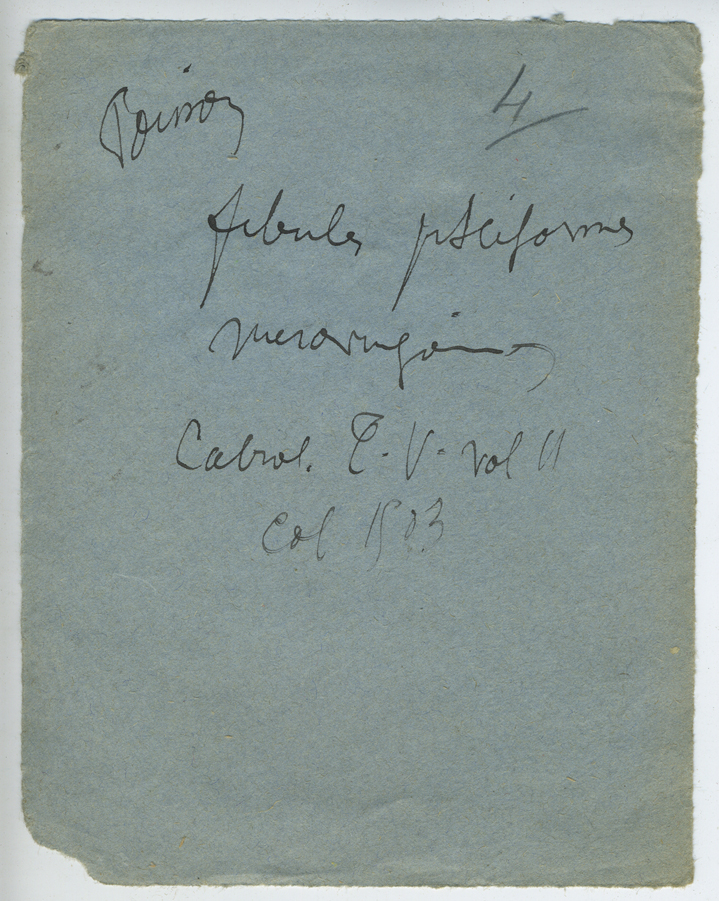 Poisson 4
fibules pisciformes
merovingiennes
Cabrol. T. V. vol II
Col 1503